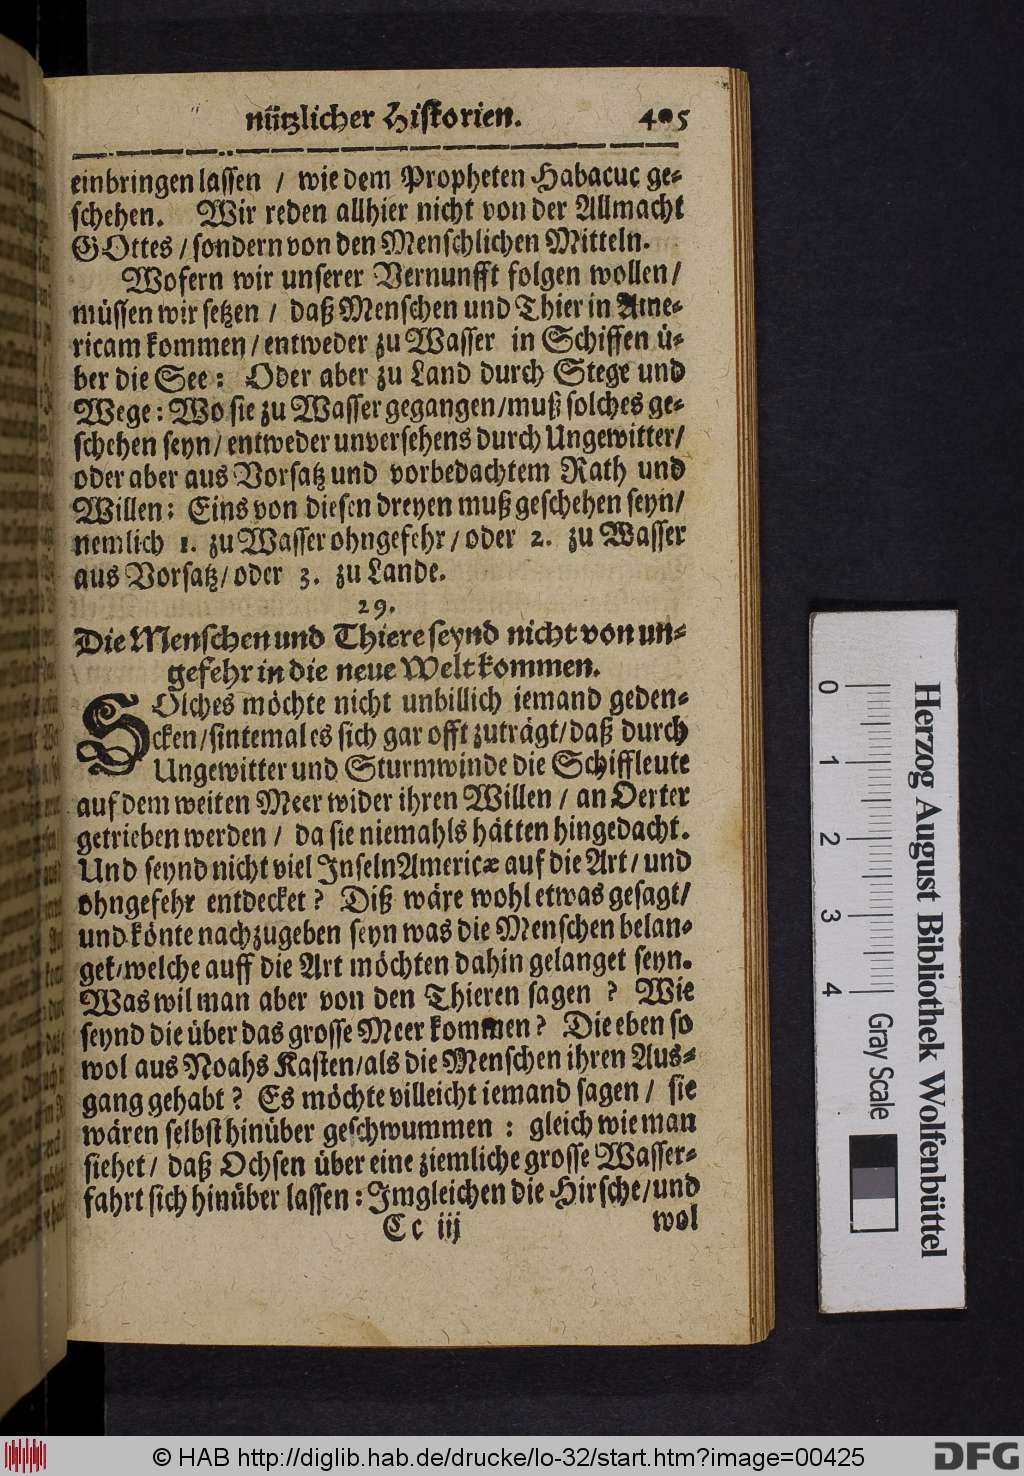 nützlicher Historien. 405
einbringen lassen / wie dem Propheten Habacuc ge-
schehen. Wir reden allhier nicht von der Allmacht
GOttes / sondern von den Menschlichen Mitteln.
Wofern wir unserer Vernunfft folgen wollen /
müssen wir setzen / daß Menschen und Thier in Ame-
ricam kommen / entweder zu Wasser in Schiffen ü-
ber die See: Oder aber zu Land durch Stege und
Wege: Wo sie zu Wasser gegangen / muß solches ge-
schehen seyn / entweder unversehens durch Ungewitter /
oder aber aus Vorsatz und vorbedachtem Rath und
Willen: Eins von diesen dreyen muß geschehen seyn /
nemlich 1. zu Wasser ohngefehr / oder 2. zu Wasser
aus Vorsatz / oder 3. zu Lande.
29.
Die Menschen und Thiere seynd nicht von un-
gefehr in die neue Welt kommen.
SOlches möchte nicht unbillich iemand geden-
cken / sintemal es sich gar offt zuträgt / daß durch
Ungewitter und Sturmwinde die Schiffleute
auf dem weiten Meer wider ihren Willen / an Oerter
getrieben werden / da sie niemahls hätten hingedacht.
Und seynd nicht viel Inseln Americæ auf die Art / und
ohngefehr entdecket? Diß wäre wohl etwas gesagt /
und könte nachzugeben seyn was die Menschen belan-
get / welche auff die Art möchten dahin gelanget seyn.
Was wil man aber von den Thieren sagen? Wie
seynd die über das grosse Meer kommen? Die eben so
wol aus Noahs Kasten / als die Menschen ihren Aus-
gang gehabt? Es möchte villeicht iemand sagen / sie
wären selbst hinüber geschwummen: gleich wie man
siehet / daß Ochsen über eine ziemliche grosse Wasser-
fahrt sich hinüber lassen: Imgleichen die Hirsche / und
Cc iij wol
0 1 2 3 4
Herzog August Bibliothek Wolfenbüttel
Gray Scale
© HAB http://diglib.hab.de/drucke/lo-32/start.htm?image=00425
DFG